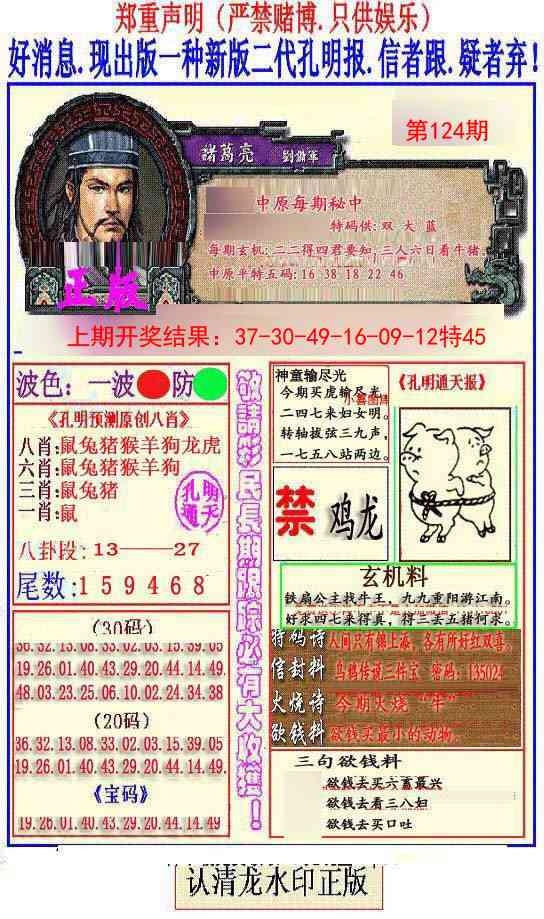 郑重声明（严禁赌博.只供娱乐）
好消息.现出版一种新版二代孔明报.信者跟.疑者弃!
諸葛亮 劉備軍
第124期
中原每期秘中
特码供: 双 大 蓝
每期玄机: 二二得四君要知, 三人六日看牛猪.
中原平特五码: 16 38 18 22 46
正版
上期开奖结果: 37-30-49-16-09-12特45
波色: 一波 防
《孔明预测原创八肖》
八肖:鼠兔猪猴羊狗龙虎
六肖:鼠兔猪猴羊狗
三肖:鼠兔猪
一肖:鼠
孔明通天
八卦段: 13——27
尾数: 1 5 9 4 6 8
敬請彩民長期跟踪必有大收獲！
神童输尽光
今期买虎输尽光
二四七来妇女明。
转轴拔弦三九声，
一七五八站两边。
《孔明通天报》
禁 鸡龙
玄机料
铁扇公主找牛王, 九九重阳游江南。
好求四七来得真, 得三去五猪何求。
特码诗 人间只有锦上添, 各有所好红双喜。
信封料 乌鸦传说三件宝 密码: 135024
火烧诗 今期火烧“牛”
欲钱料 欲钱买最小的动物。
(30码)
36.32.13.08.33.02.03.15.39.05
19.26.01.40.43.29.20.44.14.49
48.03.23.25.06.10.02.24.34.38
(20码)
36.32.13.08.33.02.03.15.39.05
19.26.01.40.43.29.20.44.14.49
《宝码》
19.26.01.40.43.29.20.44.14.49
三句欲钱料
欲钱去买六蓄最兴
欲钱去看三八妇
欲钱去买口吐
认清龙水印正版